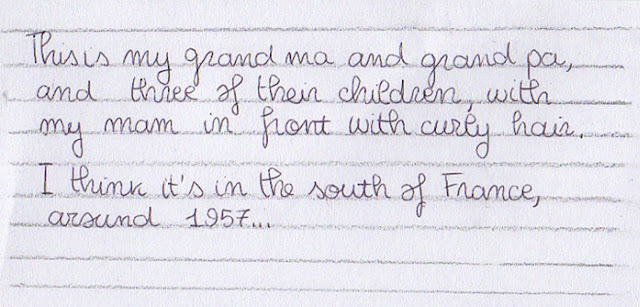 This is my grand ma and grand pa,
and three of their children, with
my mam in front with curly hair.
I think it's in the south of France,
around 1957...